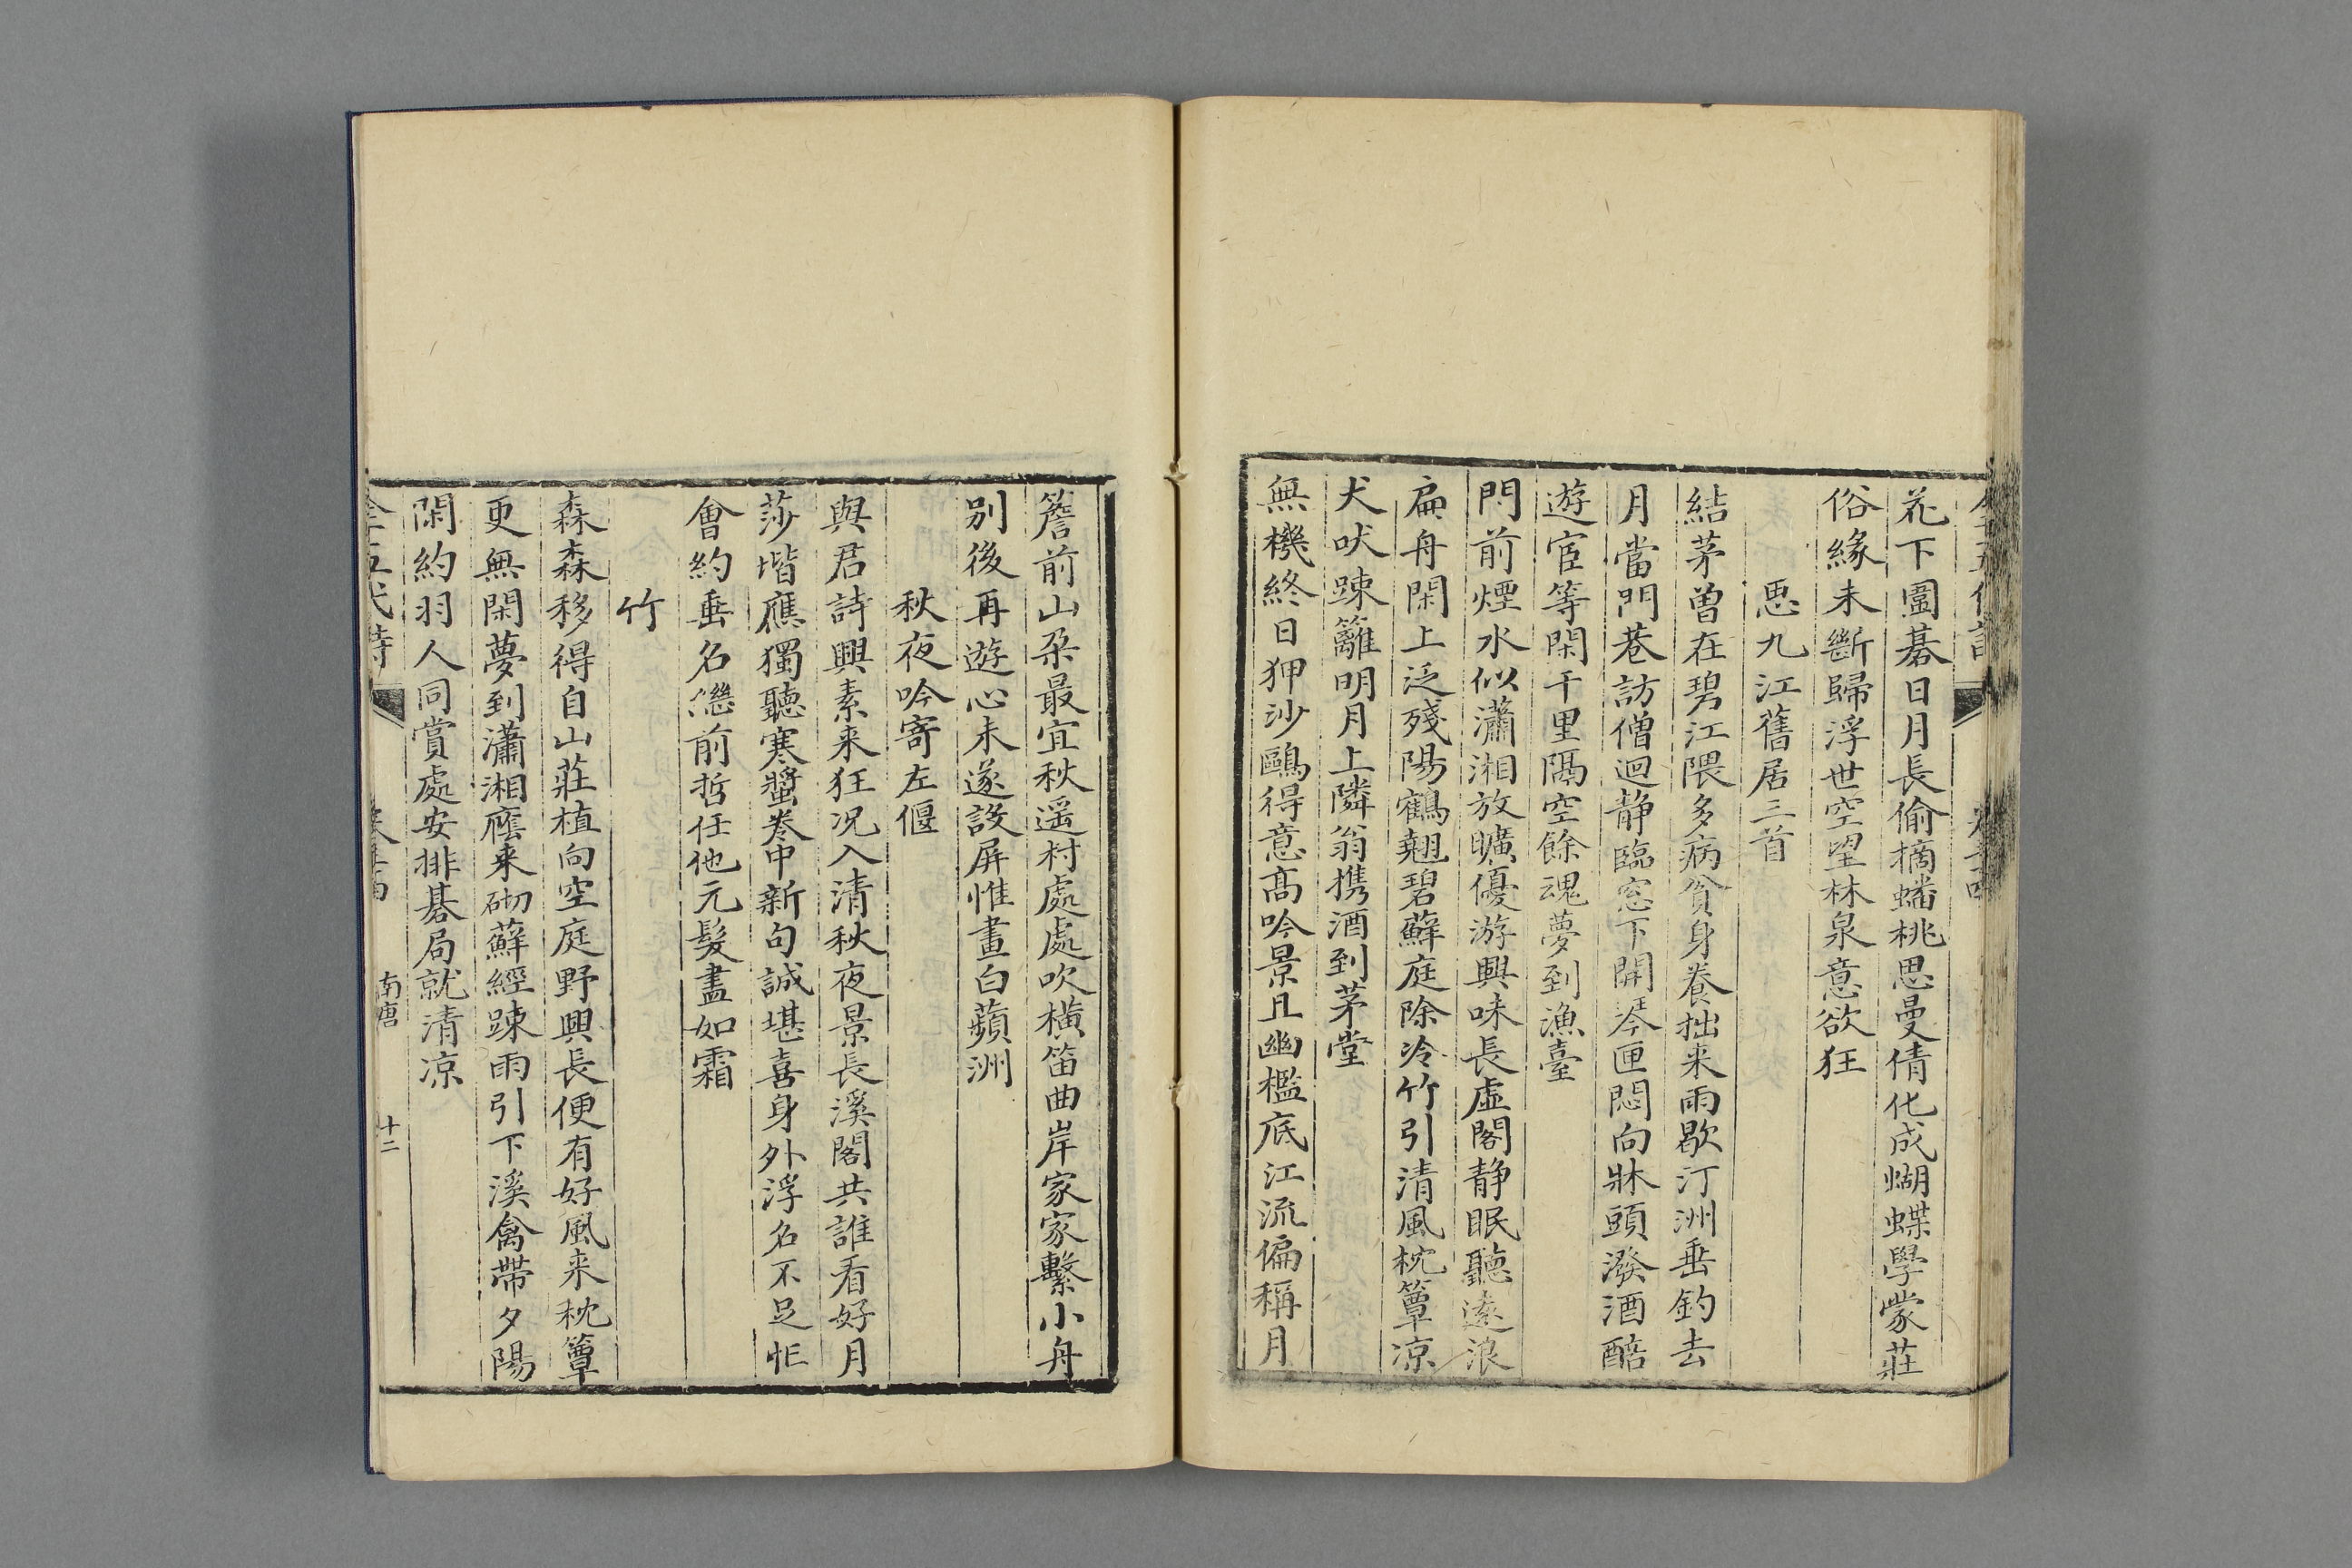 花下圍碁日月長偷摘蟠桃思曼倩化成蝴蝶學蒙莊
俗緣未斷歸浮世空望林泉意欲狂
思九江舊居三首
結茅曾在碧江隈多病貧身養拙来雨歇汀洲垂釣去
月當門巷訪僧迴静臨窓下開琴匣悶向牀頭潑酒醅
遊宦等閑千里隔空餘魂夢到漁臺
門前煙水似瀟湘放曠優游興味長虛閣静眠聽遠浪
扁舟閑上泛殘陽鶴翹碧蘚庭除冷竹引清風枕簟凉
犬吠踈籬明月上隣翁携酒到茅堂
無機終日狎沙鷗得意髙吟景且幽檻底江流偏稱月
簷前山朶最宜秋遥村處處吹橫笛曲岸家家繫小舟
别後再遊心未遂設屏惟畫白蘋洲
秋夜吟寄左偃
與君詩興素来狂况入清秋夜景長溪閣共誰看好月
莎堦應獨聽寒螿卷中新句誠堪喜身外浮名不足忙
會約垂名繼前哲任他元髮盡如霜
竹
森森移得自山莊植向空庭野興長便有好風来枕簟
更無閑夢到瀟湘䕃来砌蘚經踈雨引下溪禽帶夕陽
閑約羽人同賞處安排碁局就清凉
全五代詩 南唐 十二